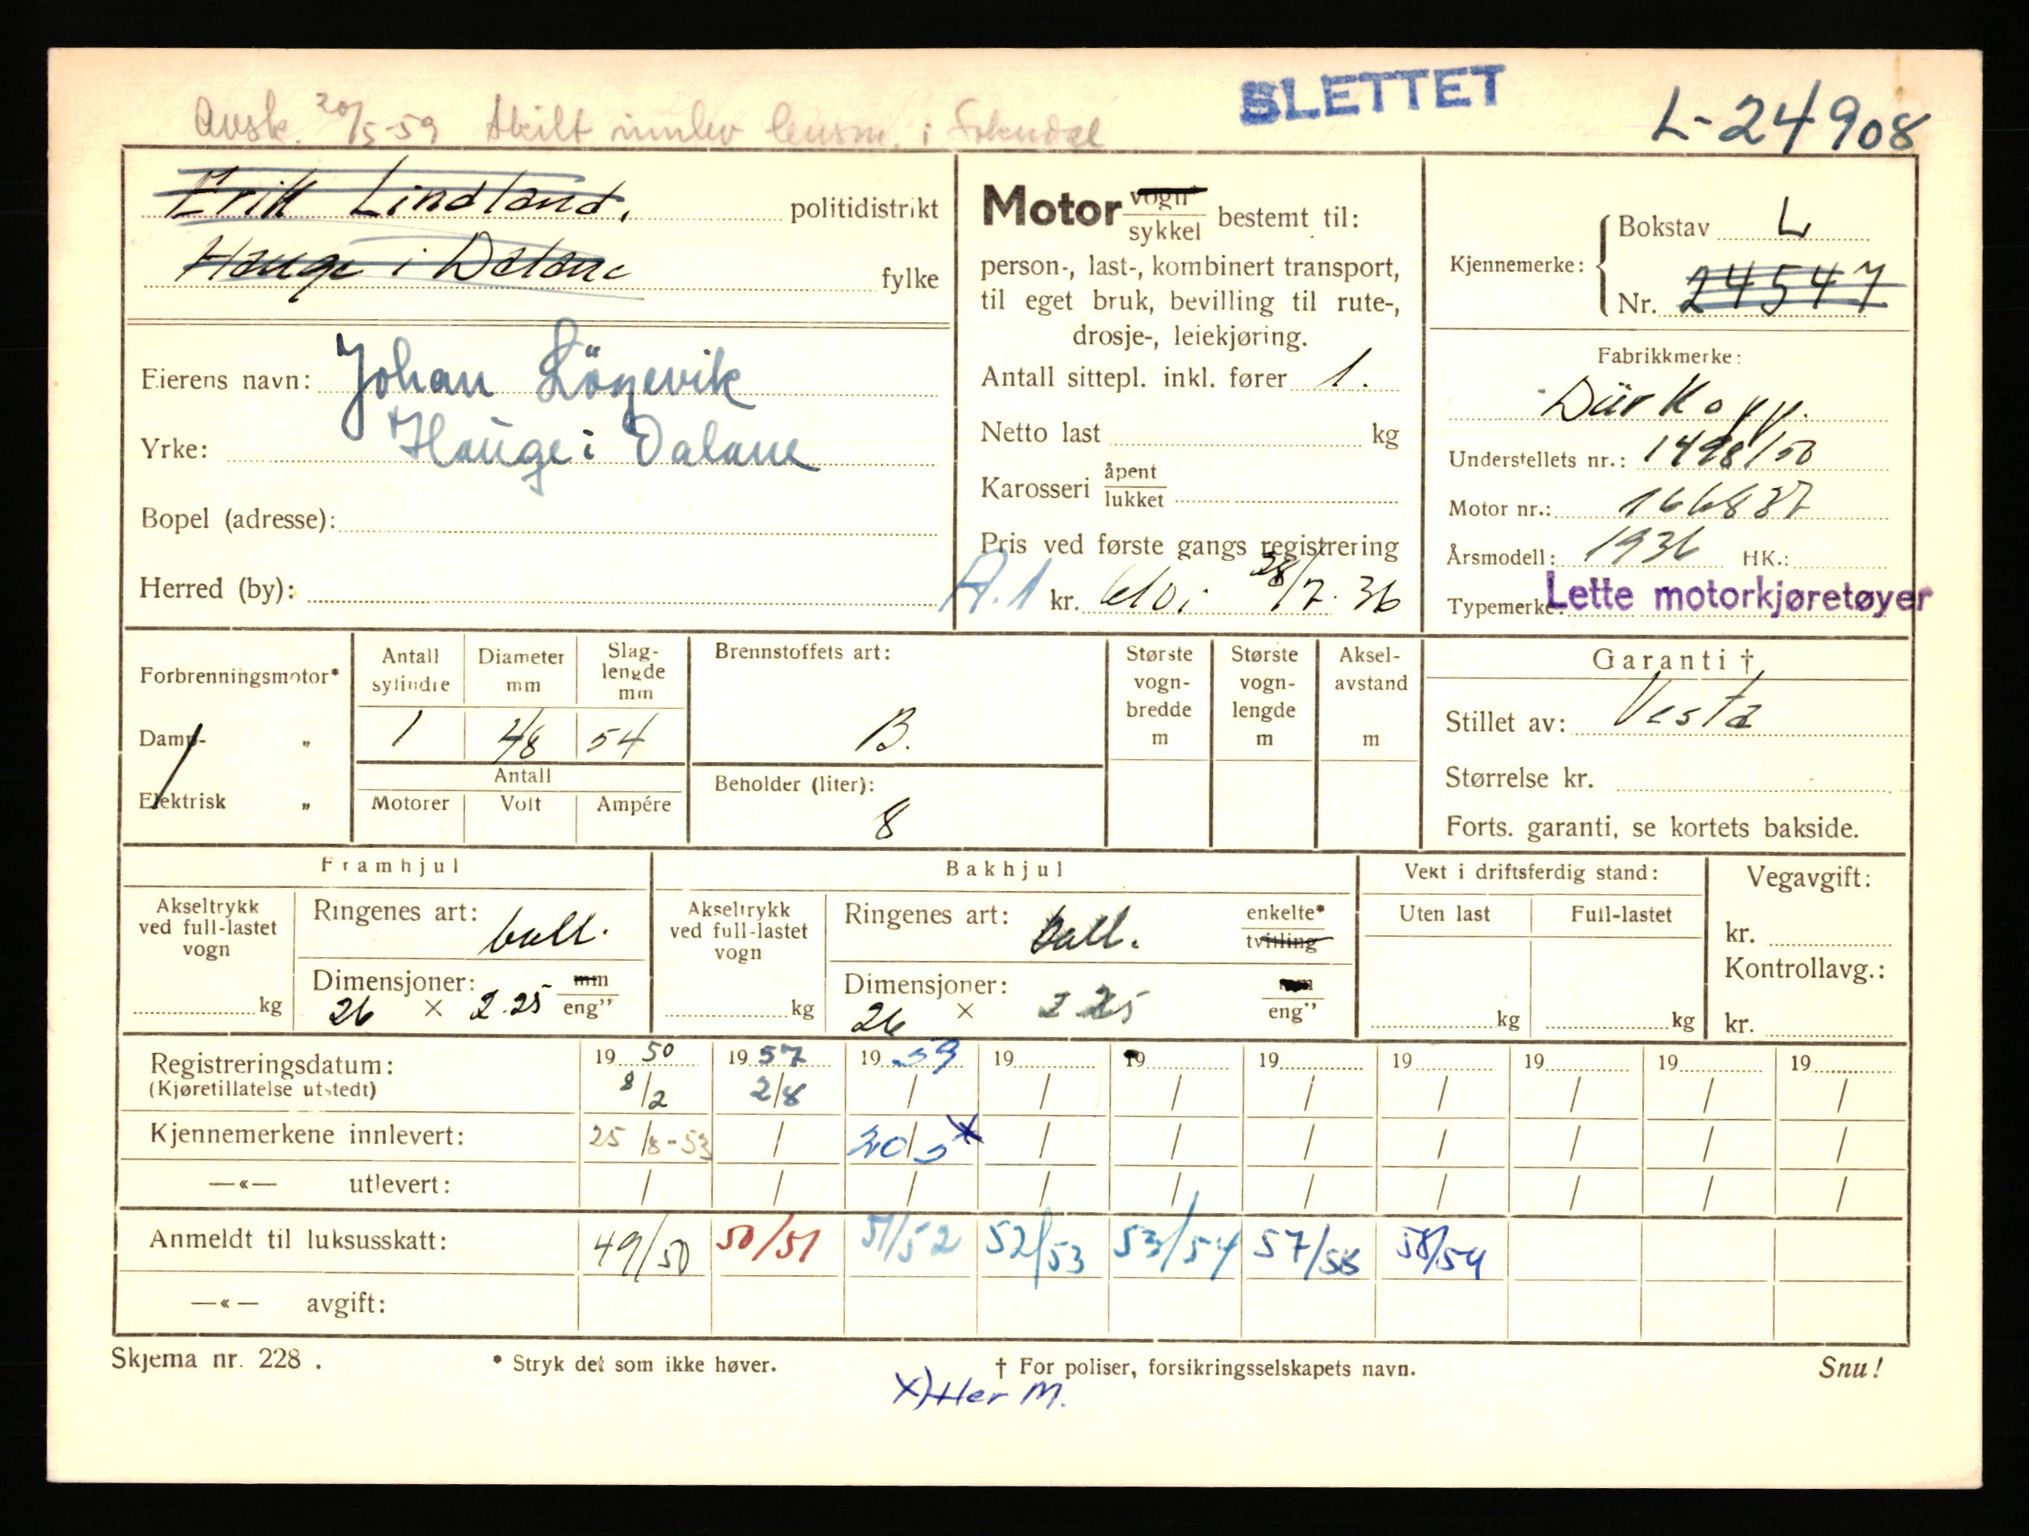 SLETTET
L-24908
Avsk. 20/5-59 Skilt innlev lensm. i Sokndal
Erik Lindland. politidistrikt
Hauge i Dalane fylke
Eierens navn: Johan Lögevik
Yrke: Hauge i Dalane
Bopel (adresse):
Herred (by):
Motor vogn/sykkel bestemt til:
person-, last-, kombinert transport,
til eget bruk, bevilling til rute-,
drosje-, leiekjøring.
Antall sittepl. inkl. fører 1.
Netto last kg
Karosseri åpent/lukket
Pris ved første gangs registrering
A.1 kr. 28/7. 36
Bokstav L
Kjennemerke:
Nr. 24547
Fabrikkmerke:
Dürkopp.
Understellets nr.: 1498/50
Motor nr.: 166837
Årsmodell: 1936 HK.:
Typemerke: Lette motorkjøretøyer
Forbrenningsmotor*
Damp- „
Elektrisk „
Antall sylindre
Diameter mm
Slag-
lengde
mm
1 48 54
Antall
Motorer Volt Ampére
Brennstoffets art:
B.
Beholder (liter):
8
Største
vogn-
bredde
m
Største
vogn-
lengde
m
Aksel-
avstand
m
Garanti †
Stillet av: Vesta
Størrelse kr.
Forts. garanti, se kortets bakside.
Framhjul
Akseltrykk
ved full-lastet
vogn
kg
Ringenes art: ball.
Dimensjoner: mm
26 × 2.25 eng”
Bakhjul
Akseltrykk
ved full-lastet
vogn
kg
Ringenes art: ball. enkelte*
tvilling
Dimensjoner: mm
26 × 2 25 eng”
Vekt i driftsferdig stand:
Uten last Full-lastet
kg kg
Vegavgift:
kr.
Kontrollavg.:
kr.
Registreringsdatum: 19 50 19 57 19 59 19 19 19 19 19 19 19
(Kjøretillatelse utstedt) 8/2 2/8 / / / / / / / /
Kjennemerkene innlevert: 25/8-53 / 20/5 x / / / / / / /
—«— utlevert: / / / / / / / / / /
Anmeldt til luksusskatt: 49/50 50/51 51/52 52/53 53/54 57/58 58/59
—«— avgift:
Skjema nr. 228 . * Stryk det som ikke høver. † For poliser, forsikringsselskapets navn. Snu!
x) Her M.